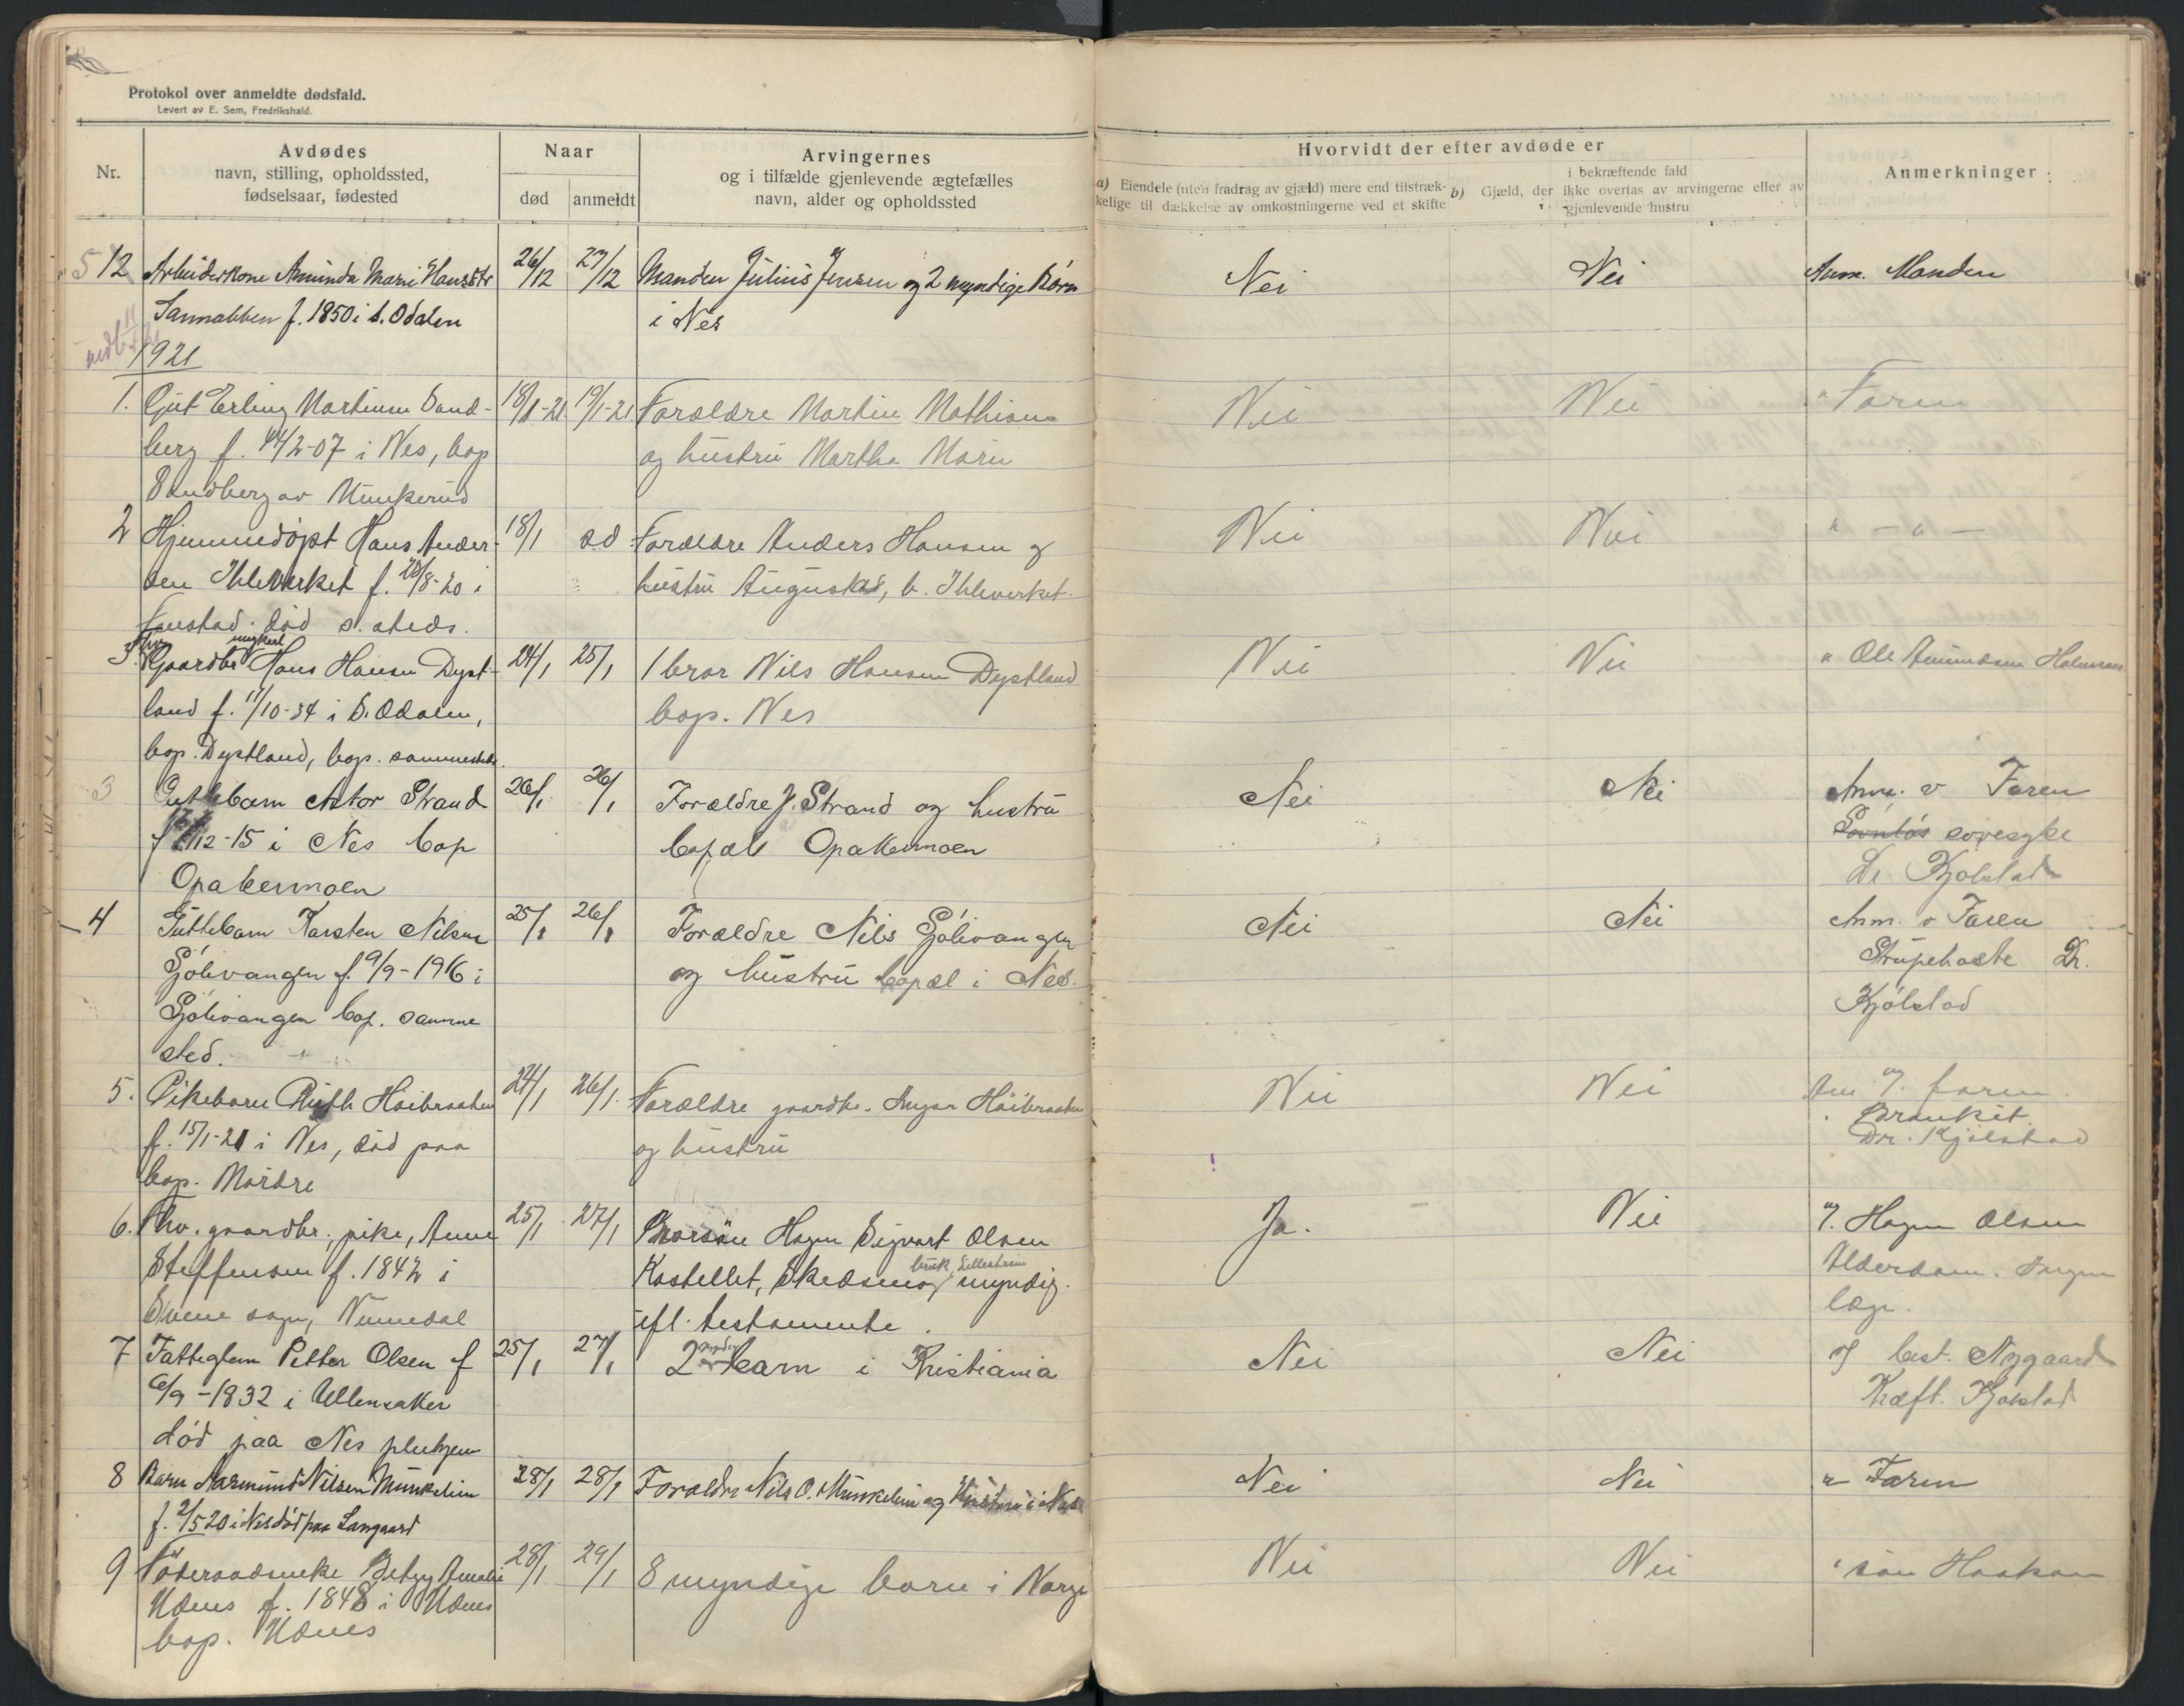 Protokol over anmeldte dødsfald.
Levert av E. Sem, Fredrikshald.
Nr.
Avdødes
navn, stilling, opholdssted,
fødselsaar, fødested
Naar
død
anmeldt
Arvingernes
og i tilfælde gjenlevende ægtefælles
navn, alder og opholdssted
Hvorvidt der efter avdøde er
a) Eiendele (uten fradrag av gjæld) mere end tilstræk-
kelige til dækkelse av omkostningerne ved et skifte
i bekræftende fald
b) Gjæld, der ikke overtas av arvingerne eller av
gjenlevende hustru
Anmerkninger
512 Arbeiderkone Amunda Marie Hansdtr 26/12 27/12 Manden Julius Jensen og 2 myndige Børn Nei Nei Anm. Manden
f. 1850 i S. Odalen i Nes
1921
1. Gut Erling Martinsen Sand- 18/1-21 19/1-21 Forældre Martin Mathisen Nei Nei " Faren
berg f. 14/2-07 i Nes, bop og hustru Martha Marie
Sandberg av Munkerud
2 Hjemmedøpt Hans Ander- 18/1 sd Forældre Anders Hansen og Nei Nei " - " -
sen Ihleverket f. /8-20 i hustru Augusta, b. Ihleverket
Fenstad. død s. steds.
3. fhv. Gaardbr ungkarl Hans Hansen Dyst- 24/1 25/1 1 bror Nils Hansen Dystland Nei Nei " Ole Amundsen
land f. 11/10-34 i S. Odalen, bop. Nes
bop. Dystland, bop. sammesteds.
3 Guttebarn Astor Strand 26/1 26/1 Forældre J. Strand og hustru Nei Nei Anm. v Faren
f /12-15 i Nes bop bopæl Opakermoen Søvnløs sovesyke
Opakermoen Dr. Kjølstad
4 Guttebarn Karsten Nilsen 25/1 26/1 Forældre Nils Sjølivangen Nei Nei Anm. v Faren
Sjølivangen f. 9/9-1916 i og hustru bopæl i Nes. Strupehoste Dr.
Sjølivangen bop. samme Kjølstad
sted.
5. Pikebarn Ruth Høibraaten 24/1 26/1. Forældre gaardbr. Høibraaten Nei Nei Anm v. faren
f. 15/1-21 i Nes, død paa og hustru Bronkit.
bop. Mordre Dr. Kjølstad
6. Fhv. gaardbr., pike, Anne 25/1 27/1 Brorsøn Hagen Sigvart Olsen Ja. Nei v. Hagen Olsen
Steffensen f. 1842 i Kastellet, Skedsmo, Lillestrøm myndig. Alderdom. Ingen
Svene sogn, Numedal ifl. testamente. læge.
7 Fattiglem Petter Olsen f 25/1 27/1 2 barn i Kristiania Nei Nei v/ best. Nygaard
6/9-1832 i Ullensaker Kræft. Kjølstad
død paa Nes pleihjem
8 Barn Aasmund Nilsen Munkelien 28/1 28/1 Forældre Nils O. Munkelien og Hustru i Nes Nei Nei " Faren
f. 2/5 20 i Nes død paa Langaard
9 Føderaadsenke Betzy Amalie 28/1 29/1 8 myndige barn i Norge Nei Nei " søn Haakon
Udnes f. 1848 i Udnes
bop. Udnes